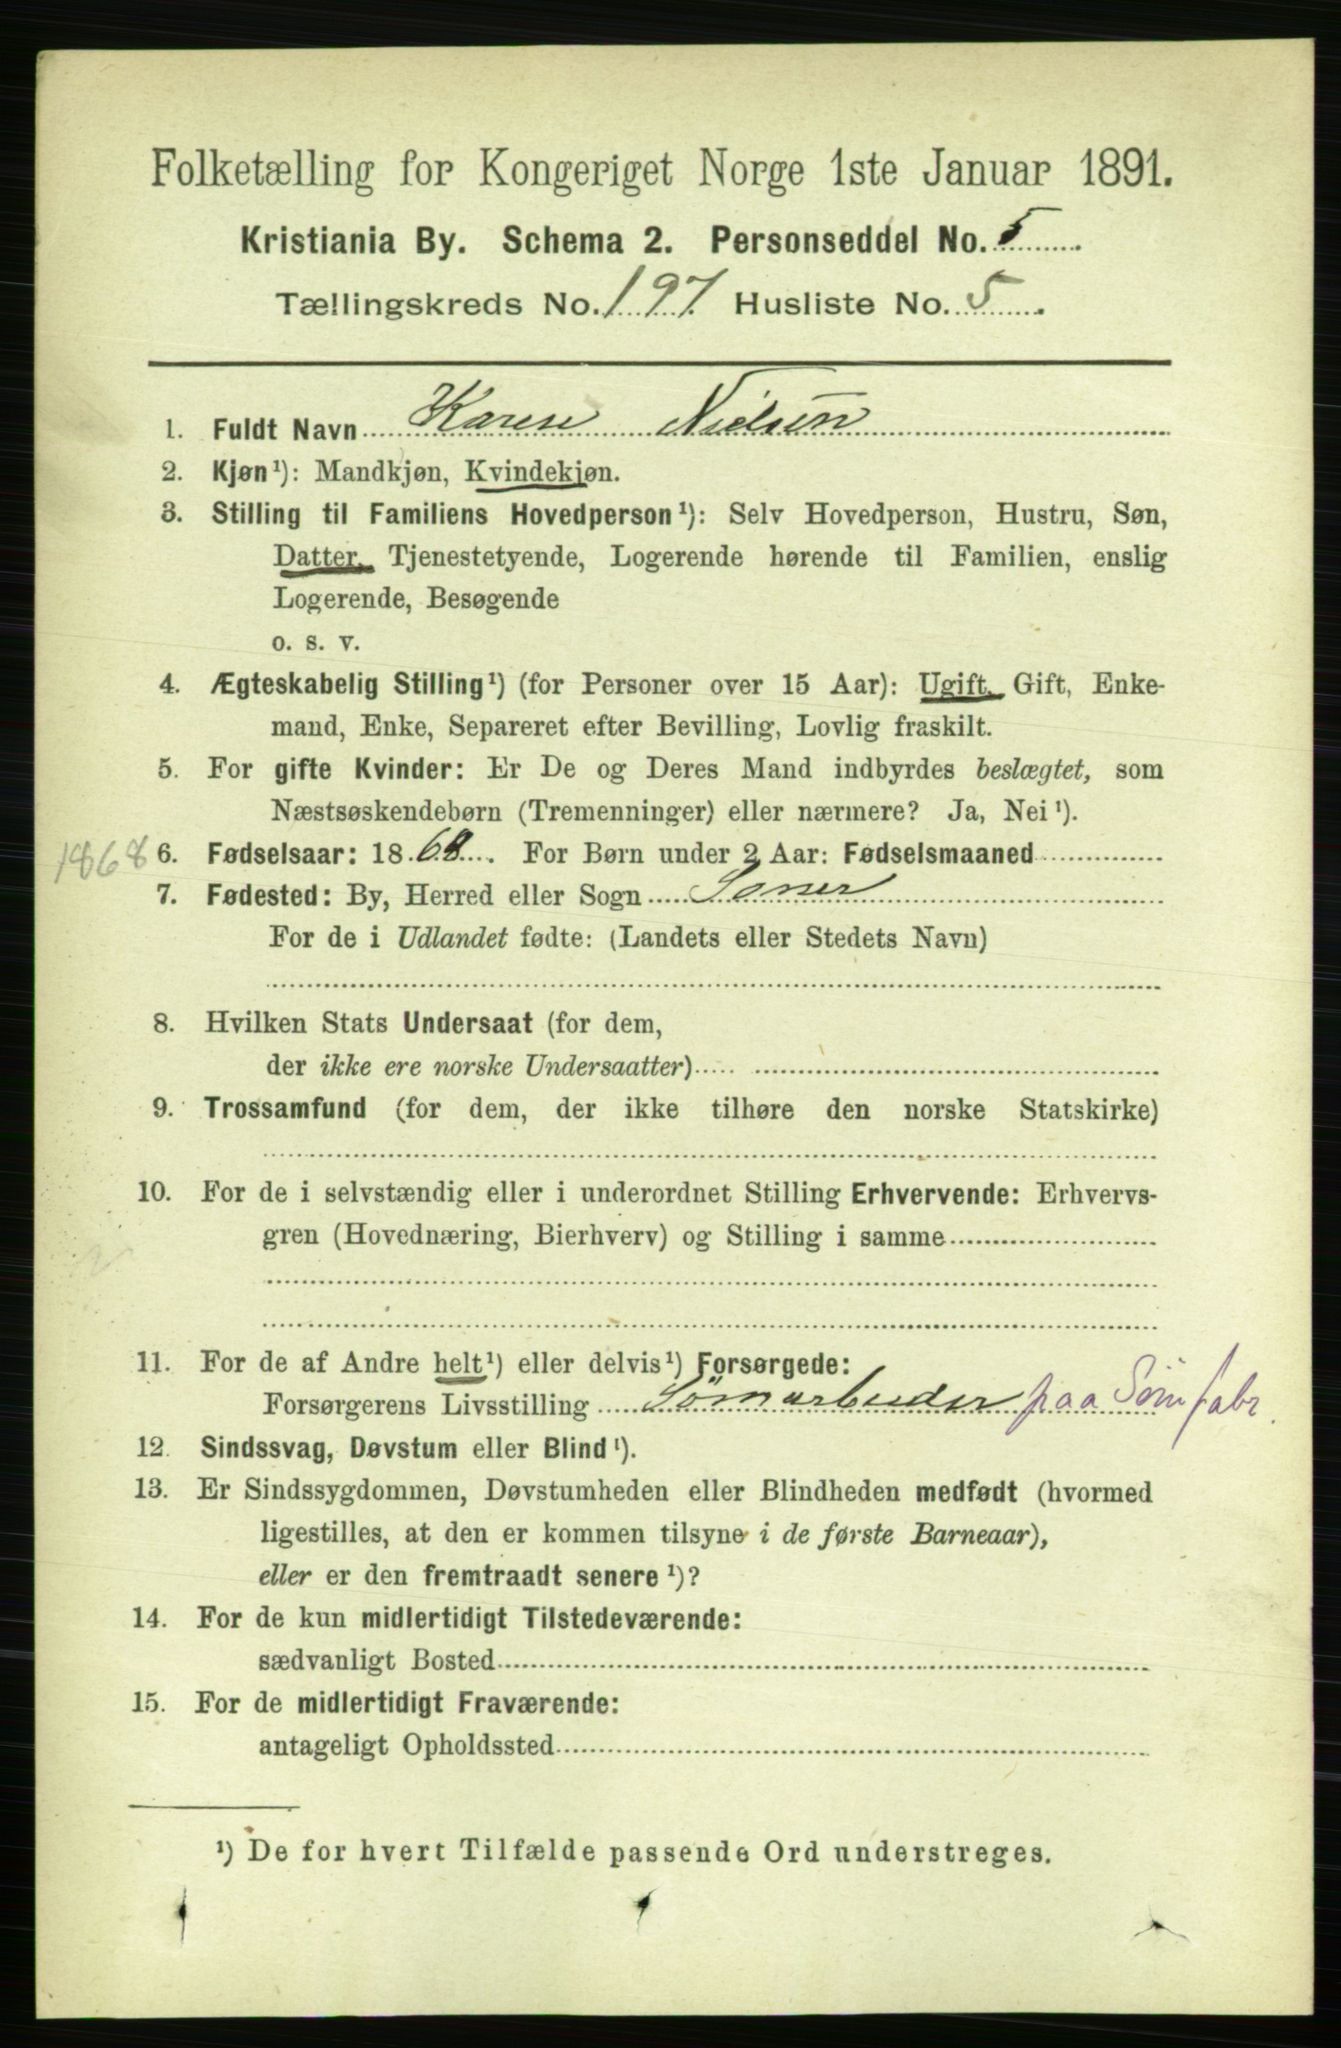 Folketælling for Kongeriget Norge 1ste Januar 1891.
Kristiania By. Schema 2. Personseddel No. 5
Tællingskreds No. 197. Husliste No. 5
1. Fuldt Navn Karen Nielsen
2. Kjøn¹): Mandkjøn, Kvindekjøn.
3. Stilling til Familiens Hovedperson¹): Selv Hovedperson, Hustru, Søn,
Datter, Tjenestetyende, Logerende hørende til Familien, enslig
Logerende, Besøgende
o. s. v.
4. Ægteskabelig Stilling¹) (for Personer over 15 Aar): Ugift, Gift, Enke-
mand, Enke, Separeret efter Bevilling, Lovlig fraskilt.
5. For gifte Kvinder: Er De og Deres Mand indbyrdes beslægtet, som
Næstsøskendebørn (Tremenninger) eller nærmere? Ja, Nei¹).
1868 6. Fødselsaar: 1868. For Børn under 2 Aar: Fødselsmaaned
7. Fødested: By, Herred eller Sogn
For de i Udlandet fødte: (Landets eller Stedets Navn)
8. Hvilken Stats Undersaat (for dem,
der ikke ere norske Undersaatter)
9. Trossamfund (for dem, der ikke tilhøre den norske Statskirke)
10. For de i selvstændig eller i underordnet Stilling Erhvervende: Erhvervs-
gren (Hovednæring, Bierhverv) og Stilling i samme
11. For de af Andre helt¹) eller delvis¹) Forsørgede:
Forsørgerens Livsstilling Sömarbeider paa Söm fabr.
12. Sindssvag, Døvstum eller Blind¹).
13. Er Sindssygdommen, Døvstumheden eller Blindheden medfødt (hvormed
ligestilles, at den er kommen tilsyne i de første Barneaar),
eller er den fremtraadt senere¹)?
14. For de kun midlertidigt Tilstedeværende:
sædvanligt Bosted
15. For de midlertidigt Fraværende:
antageligt Opholdssted
¹) De for hvert Tilfælde passende Ord understreges.